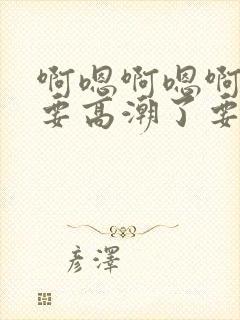 啊嗯啊嗯啊
要高潮了要
彦澤